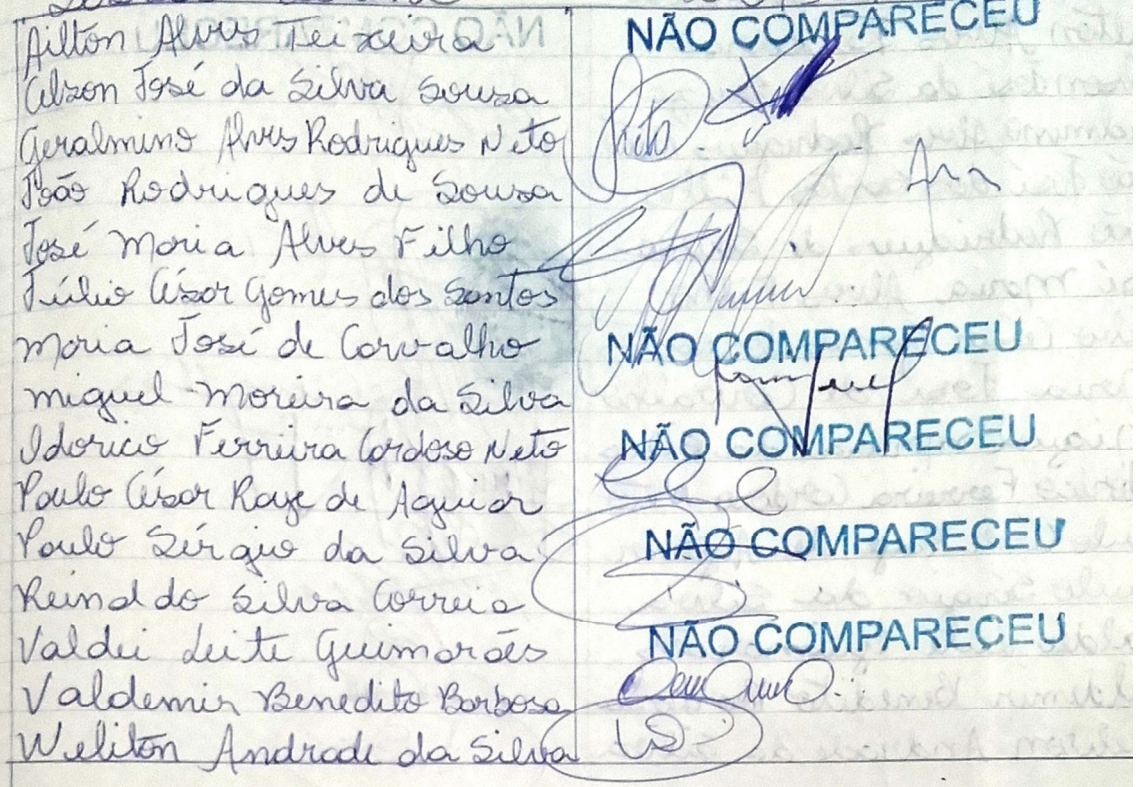 Ailton Alves Teixeira NÃO COMPARECEU
Celson José da Silva Sousa
Geralmino Alves Rodrigues Neto
João Rodrigues de Sousa
José Maria Alves Filho
Júlio César Gomes dos Santos
Maria José de Carvalho NÃO COMPARECEU
Miguel Moreira da Silva
Idorico Ferreira Cardoso Neto NÃO COMPARECEU
Paulo César Raye de Aguiar
Paulo Sérgio da Silva NÃO COMPARECEU
Reinaldo Silva Correia
Valdei Leite Guimarães NÃO COMPARECEU
Valdemir Benedito Barbosa
Weliton Andrade da Silva